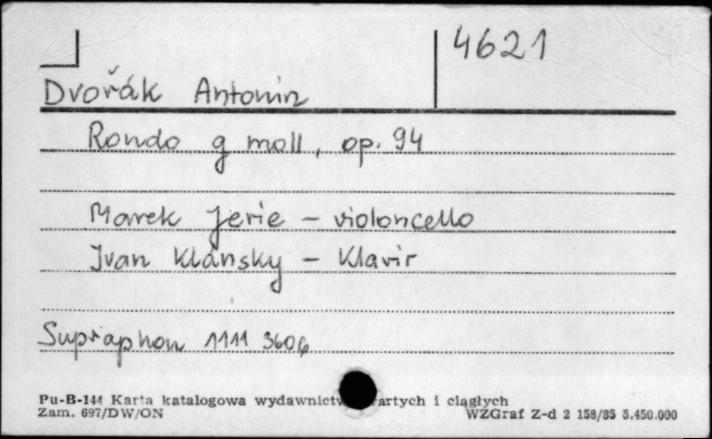 4621
Dvořák Antonin
Rondo g moll, op. 94
Marek Jerie – violoncello
Ivan Klánsky – klavir
Supraphon 1111 3606
Pu-B-144 Karta katalogowa wydawnictw artych i ciągłych
Zam. 697/DW/ON WZGraf Z-d 2 158/85 5.450.000